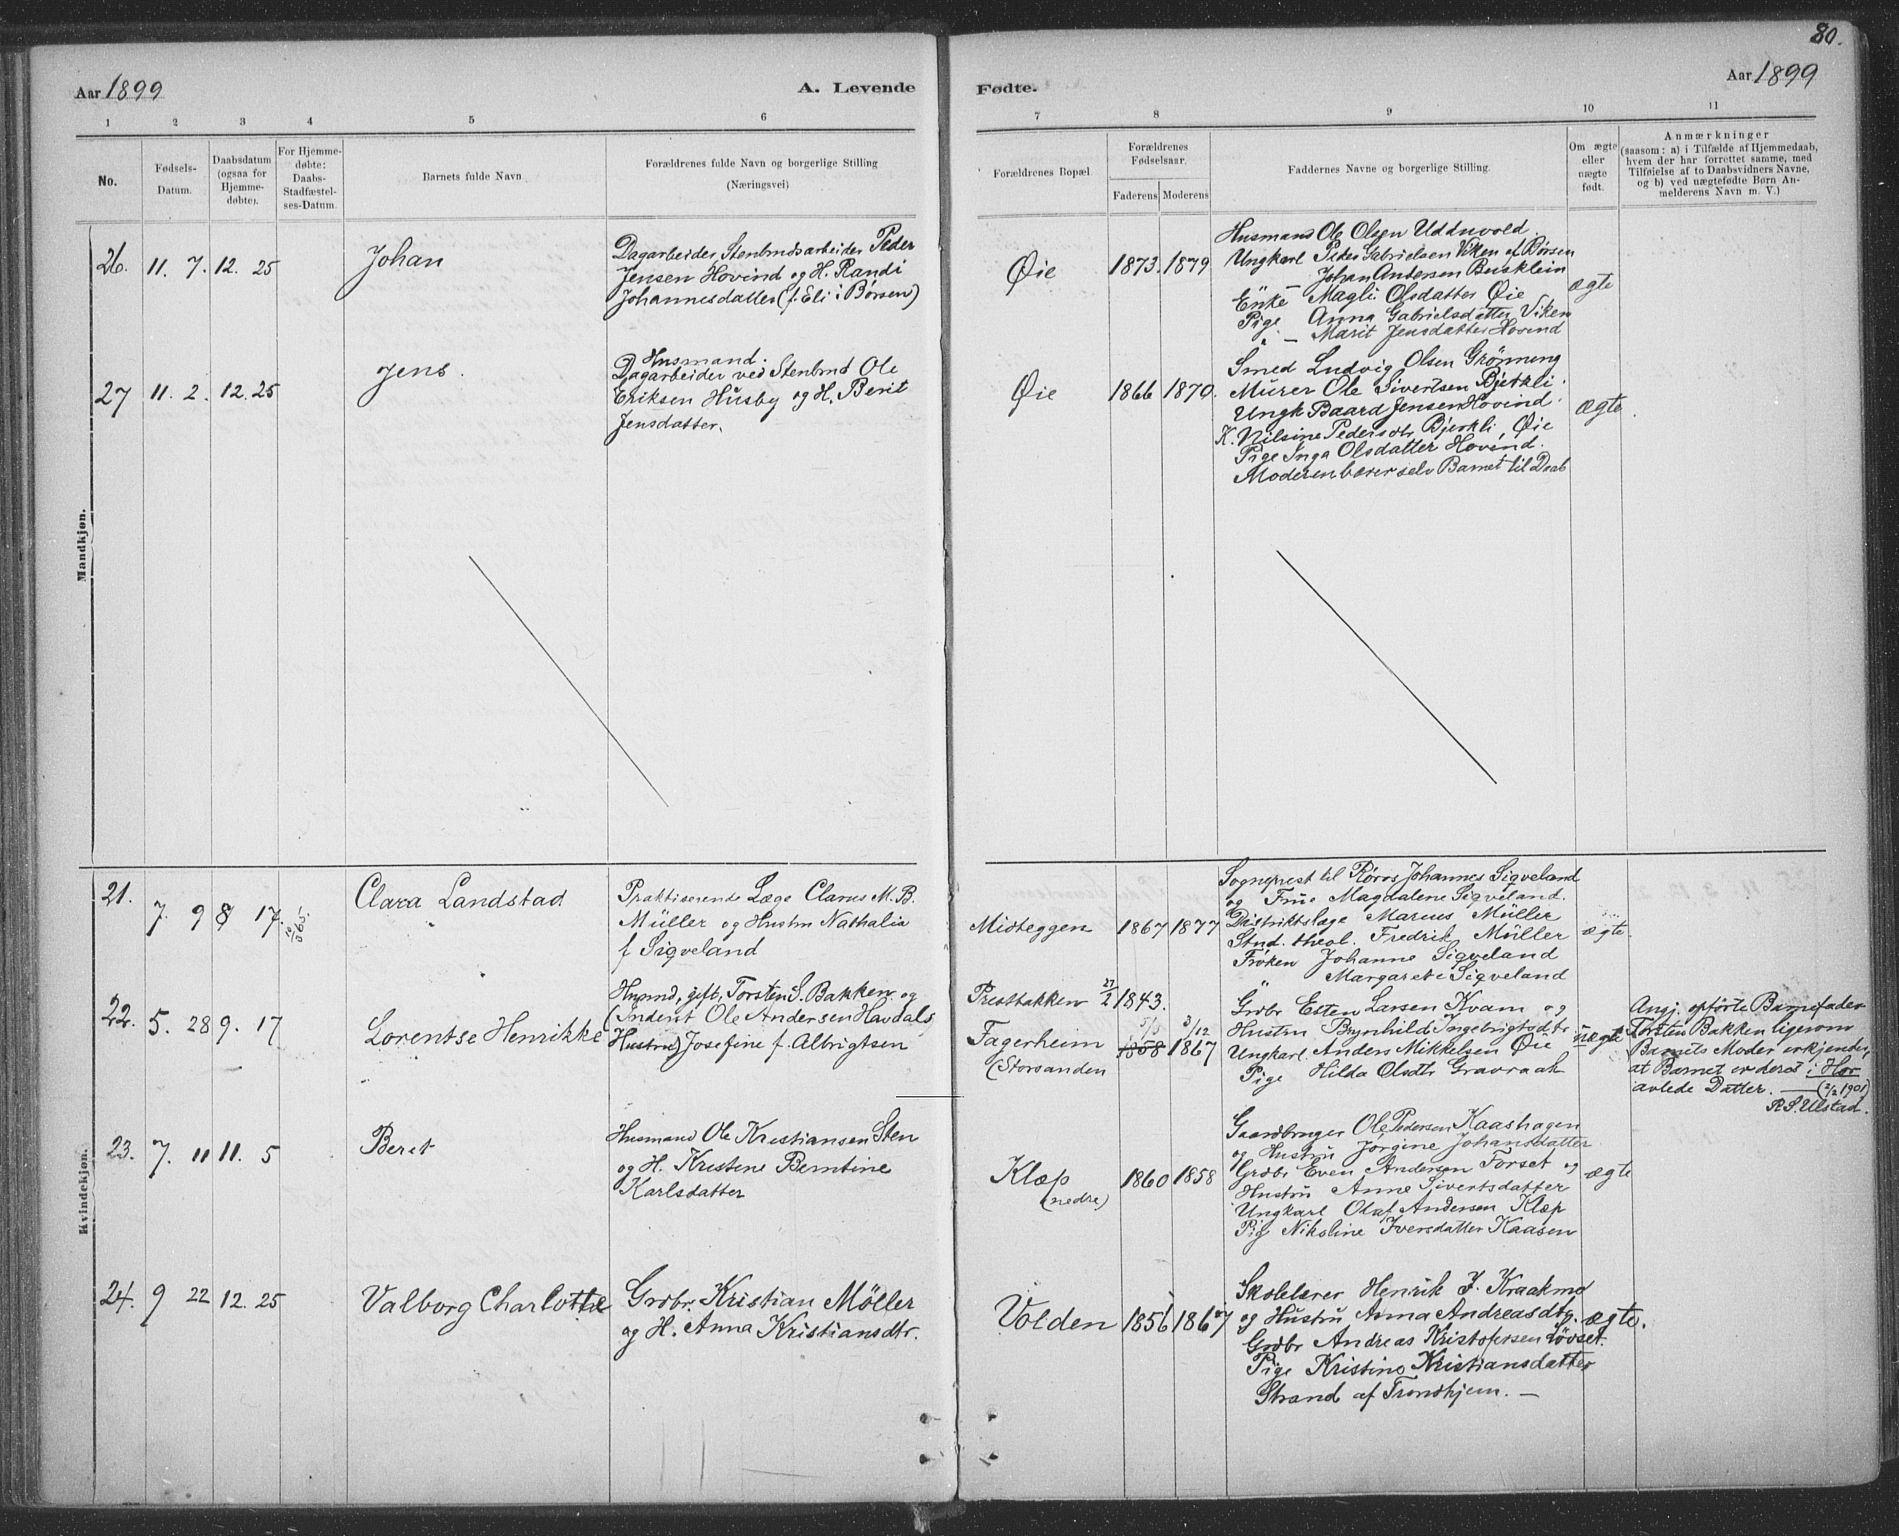 80.
Aar 1899
A. Levende
Fødte.
Aar 1899
1 2 3 4 5 6 7 8 9 10 11
No.
Fødsels-
Datum.
Daabsdatum
(ogsaa for
Hjemme-
døbte).
For Hjemme-
døbte:
Daabs-
Stadfæstel-
ses-Datum.
Barnets fulde Navn
Forældrenes fulde Navn og borgerlige Stilling
(Næringsvei)
Forældrenes Bopæl.
Forældrenes
Fødselsaar.
Faderens Moderens
Faddernes Navne og borgerlige Stilling.
Om ægte
eller
uægte
født.
Anmærkninger
(saasom: a) i Tilfælde af Hjemmedaab,
hvem der har forrettet samme, med
Tilføielse af to Daabsvidners Navne,
og b) ved uægtefødte Børn An-
melderens Navn m. V.)
Mandkjøn.
26. 11. 7. 12. 25
Johan
Dagarbeider, Stenbrudsarbeider Peder
Jensen Hovind og H. Randi
Johannesdatter (f. Eli i Børsen)
Øie
1873. 1879
Husmand Ole Olsen Udduvold.
Ungkarl Peder Gabrielsen Viken af Børsen
— Johan Andersen Busklein
Enke Magli Olsdatter Øie
Pige Anna Gabrielsdatter Viken
" — Marit Jensdatter Hovind
ægte
27 11. 2. 12. 25
Jens.
Husmand.
Dagarbeider ved Stenbrud Ole
Eriksen Husby og H. Berit
Jensdatter.
Øie
1866 1870.
Smed Ludvig Olsen Grønneng
Murer Ole Sivertsen Bjerkli.
Ungk Baard Jensen Hovind.
K. Nilsine Pedersdtr Bjerkli, Øie
Pige Inga Olsdatter Hovind.
Moderen bærer selv Barnet til Daab
ægte.
Kvindekjøn.
21. 7. 9 8 17.
Clara Landstad
Praktiserende Læge Claus M. B.
Müller og Hustru Nathalia
f Sigveland
Midteggen
1867 1877
Sogneprest til Røros Johannes Sigveland
og Frue Magdalene Sigveland.
Distriktslæge Marius Müller
Stud. theol. Fredrik Müller
Frøken Johanne Sigveland
" Margarete Sigveland
ægte.
22. 5. 28 9. 17
Lorentse Henrikke
Husmd, gift, Torsten S. Bakken og
(Inderst Ole Andersen Havdals
Hustru) Josefine f. Albrigtsen
Prestbakken
27/2 1843.
Fagerheim
(Storsanden
5/5 1858 3/12 1867
Grdbr Esten Larsen Kvam og
Hustru Brynhild Ingebrigtsdtr
Ungkarl Anders Mikkelsen Øie
Pige Hilda Olsdtr Gravraak
uægte
Angj. opførte Barnefader
Torsten Bakken ligesom
Barnets Moder erkjender,
at Barnet er deres i Hor
avlede Datter. — (2/2 1901)
R. S. Ulstad.
23. 7. 11 11. 5
Beret
Husmand Ole Kristiansen Sten
og H. Kristine Berntine
Karlsdatter
Klæp
(nedre)
1860 1858
Gaardbruger Ole Pedersen Kaashagen
og Hustru Jørgine Johansdatter
Grdbr Even Andersen Forset og
Hustru Anne Sivertsdatter
Ungkarl Oluf Andersen Klæp
Pig Nikoline Iversdatter Kaasen
ægte
24. 9 22 12. 25
Valborg Charlotte
Grdbr. Kristian Möller
og H. Anna Kristiansdtr.
Volden
1856 1867
Skolelærer Henrik J. Kraakmo
og Hustru Anna Andreasdtr.
Grdbr Andreas Kristofersen Løvset.
Pige Kristine Kristiansdatter
Strand af Trondhjem. —
ægte.